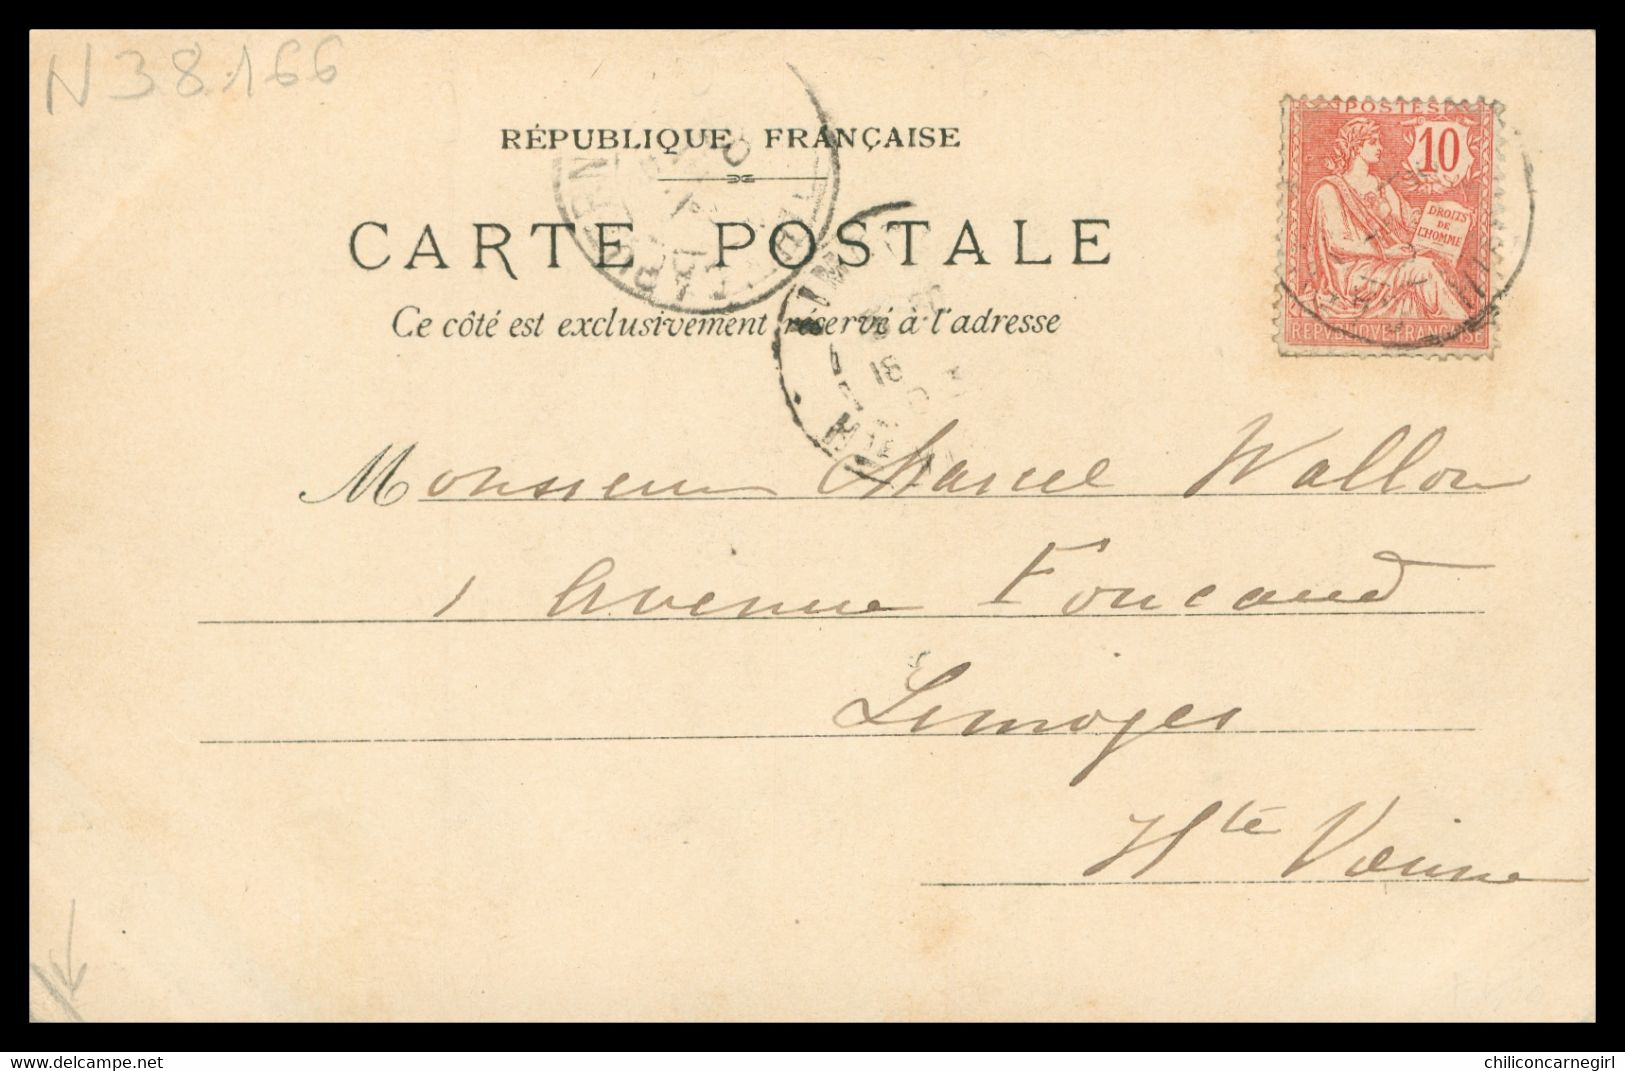 N38.166
RÉPUBLIQUE FRANÇAISE
CARTE POSTALE
Ce côté est exclusivement réservé à l'adresse
POSTES
10
DROITS
DE
L'HOMME
REPVBLIQVE FRANÇAISE
18
Monsieur Marcel Wallon
1 Avenue Foucaud
Limoges
Hte Vienne
https://www.delcampe.net
chiliconcarnegirl